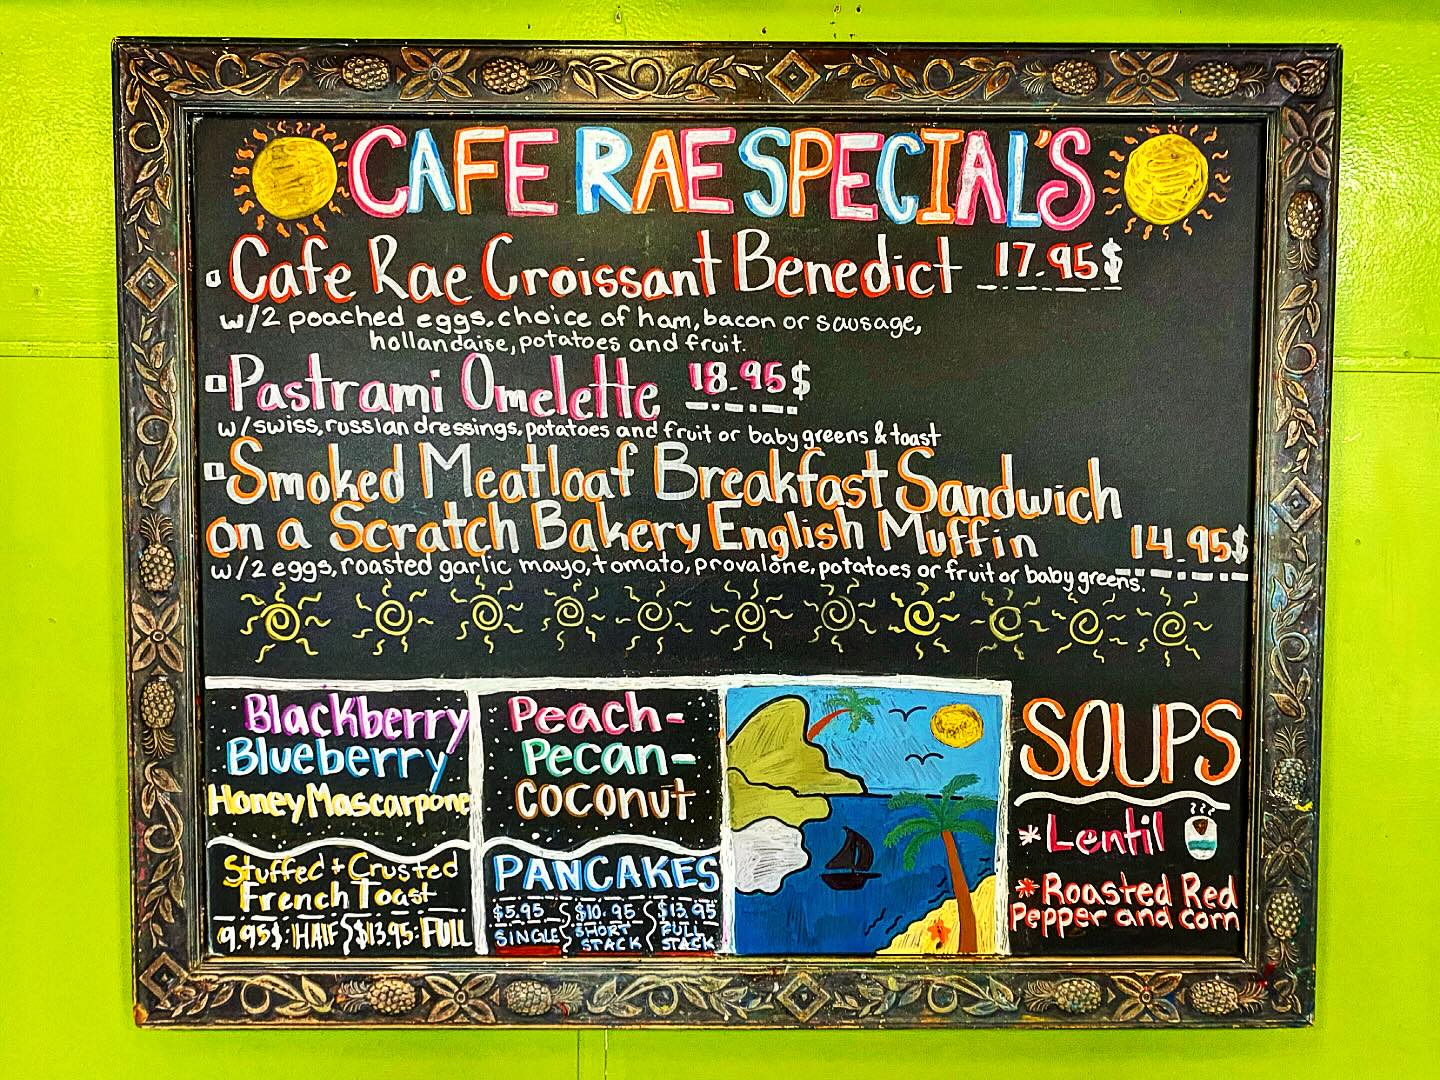 CAFE RAE SPECIAL'S
Cafe Rae Croissant Benedict 17.95$
w/2 poached eggs, choice of ham, bacon or sausage,
hollandaise, potatoes and fruit.
Pastrami Omelette 18.95$
w/swiss, russian dressings, potatoes and fruit or baby greens & toast
Smoked Meatloaf Breakfast Sandwich
on a Scratch Bakery English Muffin 14.95$
w/2 eggs, roasted garlic mayo, tomato, provalone, potatoes or fruit or baby greens.
Blackberry
Blueberry
Honey Mascarpone
Stuffed + Crusted
French Toast
9.95$: HALF } $13.95: FULL
Peach-
Pecan-
Coconut
PANCAKES
$5.95 } $10.95 { $13.95
SINGLE SHORT STACK FULL STACK
SOUPS
* Lentil
* Roasted Red
Pepper and corn